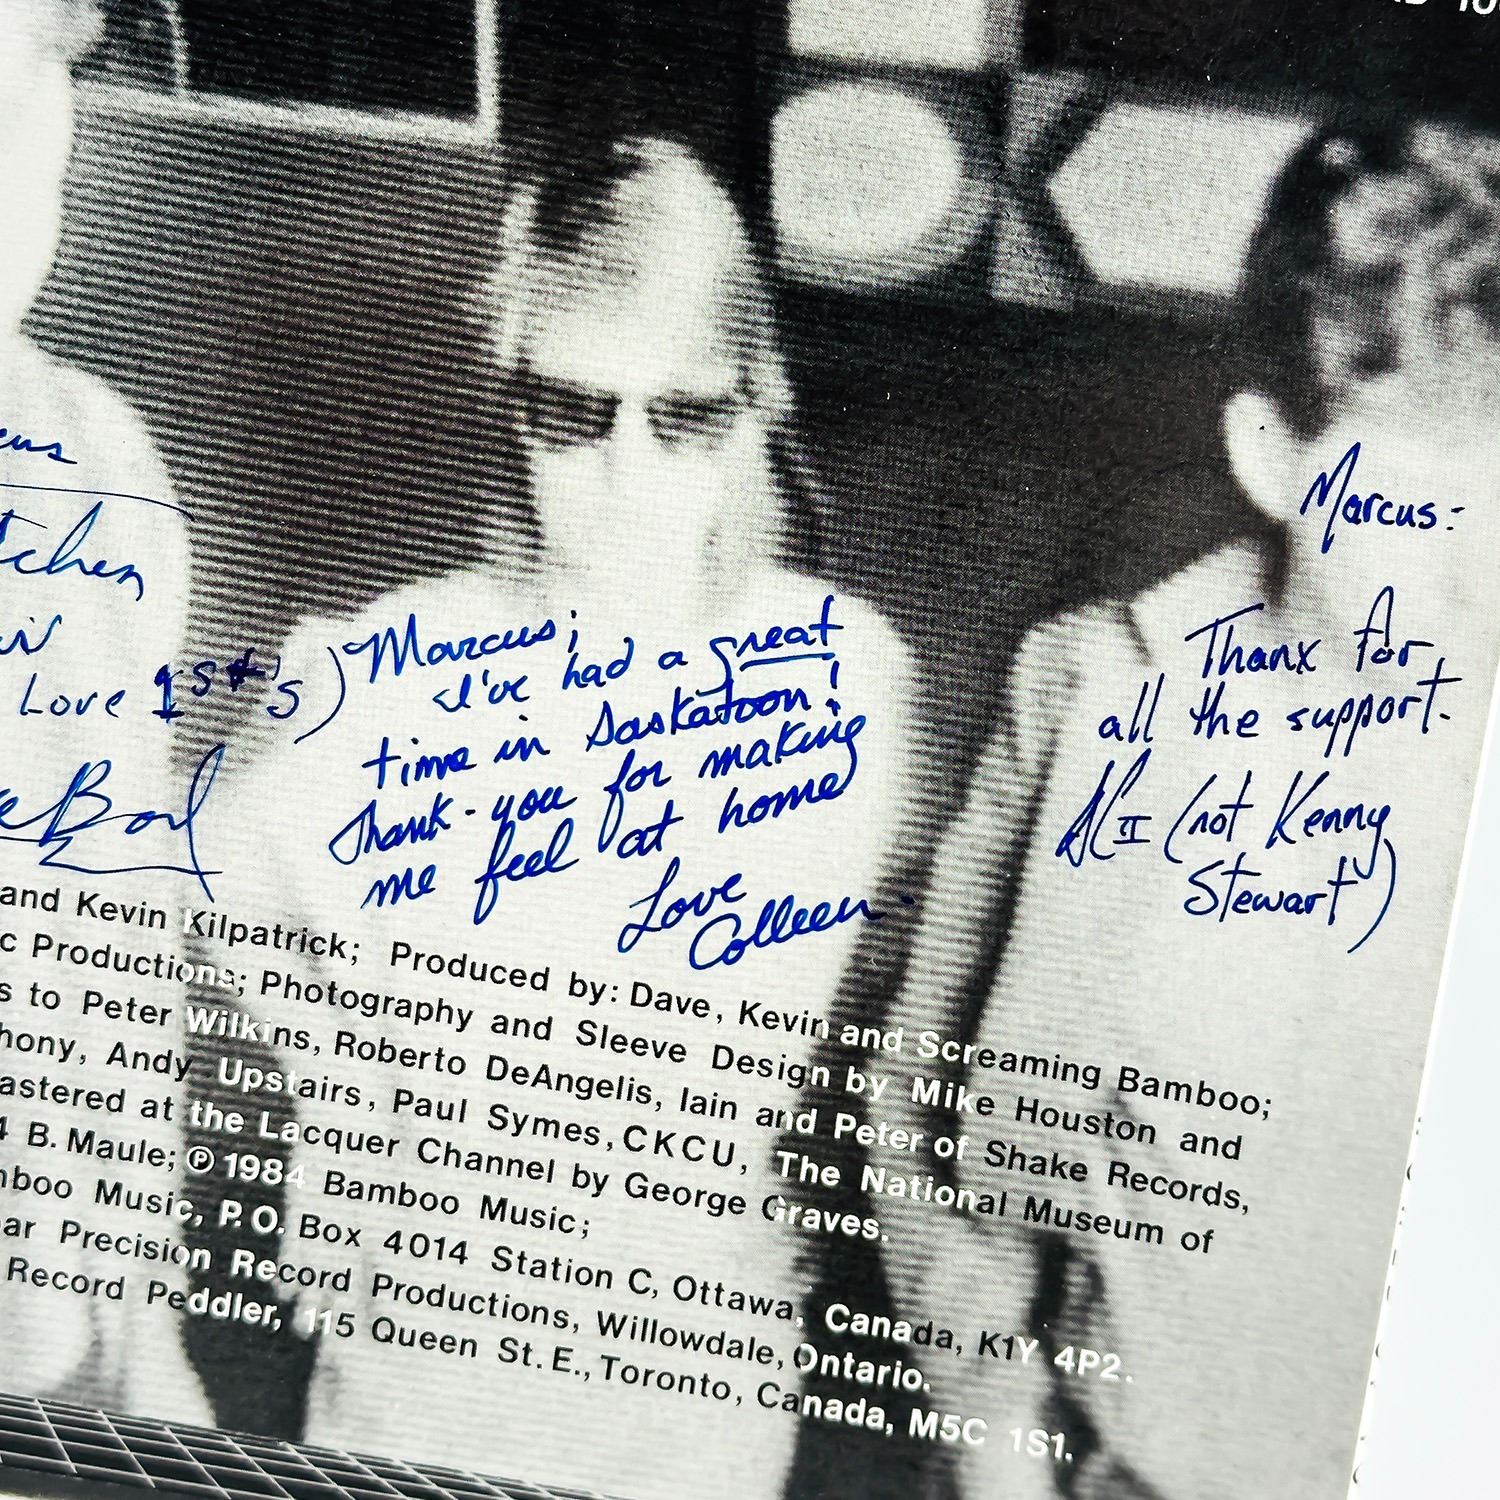 Marcus:
Thanx for
all the support.
(not Kenny
Stewart)
tchen
Love 1st's)
Marcus;
I've had a great
time in Saskatoon!
Thank-you for making
me feel at home
Love
Colleen
and Kevin Kilpatrick; Produced by: Dave, Kevin and Screaming Bamboo;
c Productions; Photography and Sleeve Design by Mike Houston and
s to Peter Wilkins, Roberto DeAngelis, Iain and Peter of Shake Records,
hony, Andy Upstairs, Paul Symes, CKCU, The National Museum of
astered at the Lacquer Channel by George Graves.
4 B. Maule; ℗ 1984 Bamboo Music;
mboo Music, P.O. Box 4014 Station C, Ottawa, Canada, K1Y 4P2.
ar Precision Record Productions, Willowdale, Ontario.
Record Peddler, 115 Queen St. E., Toronto, Canada, M5C 1S1.